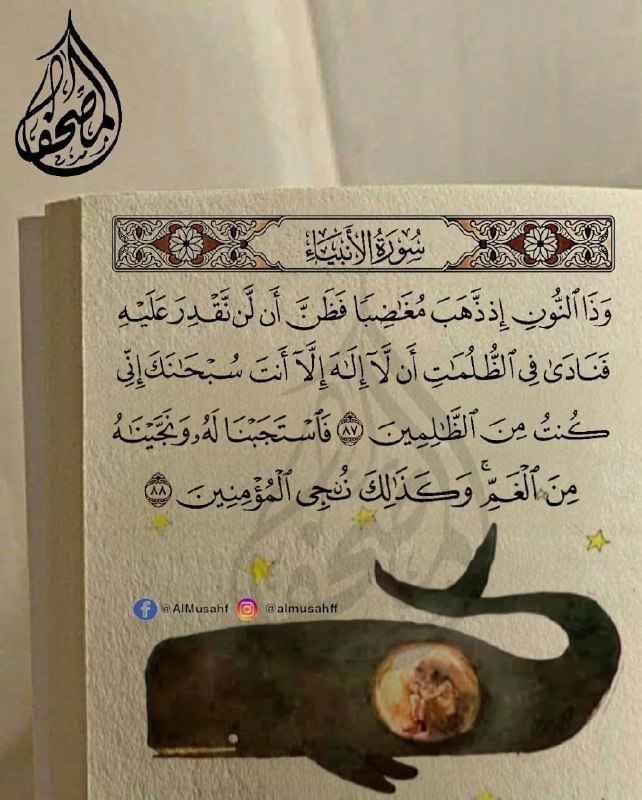 المصحف
سُورَةُ الأَنبِيَاءِ
وَذَا ٱلنُّونِ إِذ ذَّهَبَ مُغَٰضِبٗا فَظَنَّ أَن لَّن نَّقۡدِرَ عَلَيۡهِ
فَنَادَىٰ فِي ٱلظُّلُمَٰتِ أَن لَّآ إِلَٰهَ إِلَّآ أَنتَ سُبۡحَٰنَكَ إِنِّي
كُنتُ مِنَ ٱلظَّٰلِمِينَ ٨٧ فَٱسۡتَجَبۡنَا لَهُۥ وَنَجَّيۡنَٰهُ
مِنَ ٱلۡغَمِّۚ وَكَذَٰلِكَ نُـۨجِي ٱلۡمُؤۡمِنِينَ ٨٨
@AlMusahf @almusahff